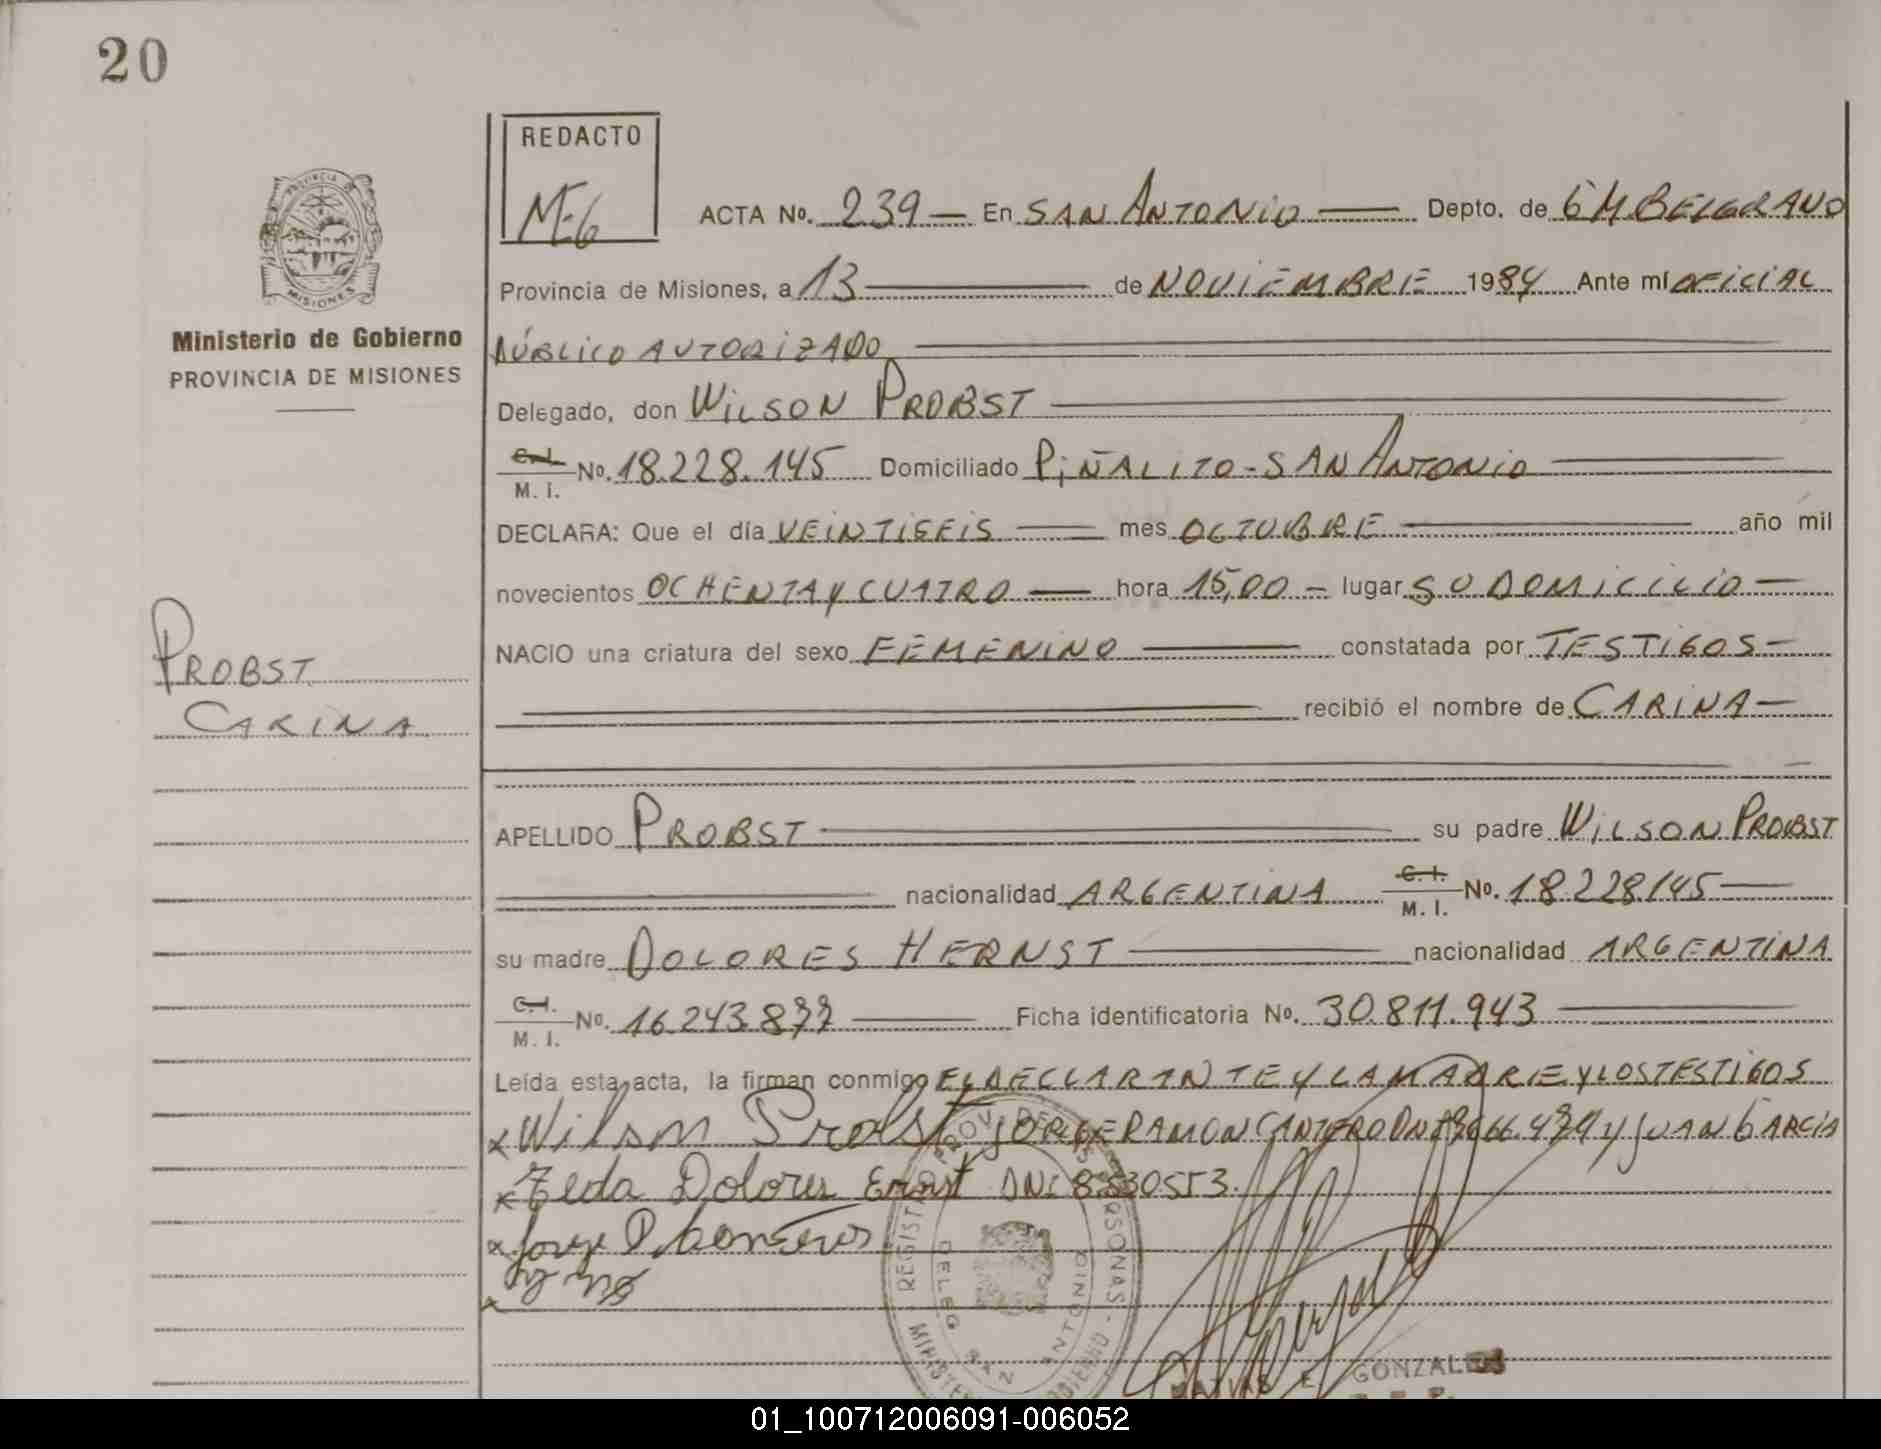 20
REDACTO
ME6
PROVINCIA
MISIONES
Ministerio de Gobierno
PROVINCIA DE MISIONES
ACTA No. 239 — En SAN ANTONIO — Depto. de GM BELGRANO
Provincia de Misiones, a 13 — de NOVIEMBRE 1984 Ante mí OFICIAL
PÚBLICO AUTORIZADO
Delegado, don WILSON PROBST
C.I. / M.I. No. 18.228.145 Domiciliado PIÑALITO-SAN ANTONIO
DECLARA: Que el día VEINTISEIS — mes OCTUBRE — año mil
novecientos OCHENTA Y CUATRO — hora 15,00 – lugar SU DOMICILIO —
NACIO una criatura del sexo FEMENINO — constatada por TESTIGOS –
recibió el nombre de CARINA —
PROBST
CARINA
APELLIDO PROBST — su padre WILSON PROBST
nacionalidad ARGENTINA C.I. / M.I. No. 18.228145 —
su madre DOLORES HERNST — nacionalidad ARGENTINA
C.I. / M.I. No. 16.243.877 — Ficha identificatoria No. 30.811.943
Leída esta acta, la firman conmigo EL DECLARANTE Y LA MADRE Y LOS TESTIGOS
x Wilson Probst JORGE RAMON CANTERO DNI Y JUAN GARCIA
x Zeda Dolores Ernst DNI 8530553.
x Jorge
REGISTRO PROV. DE LAS PERSONAS - MINISTERIO GOBIERNO
DELEG. SAN ANTONIO
MATIAS E. GONZALEZ
01_100712006091-006052